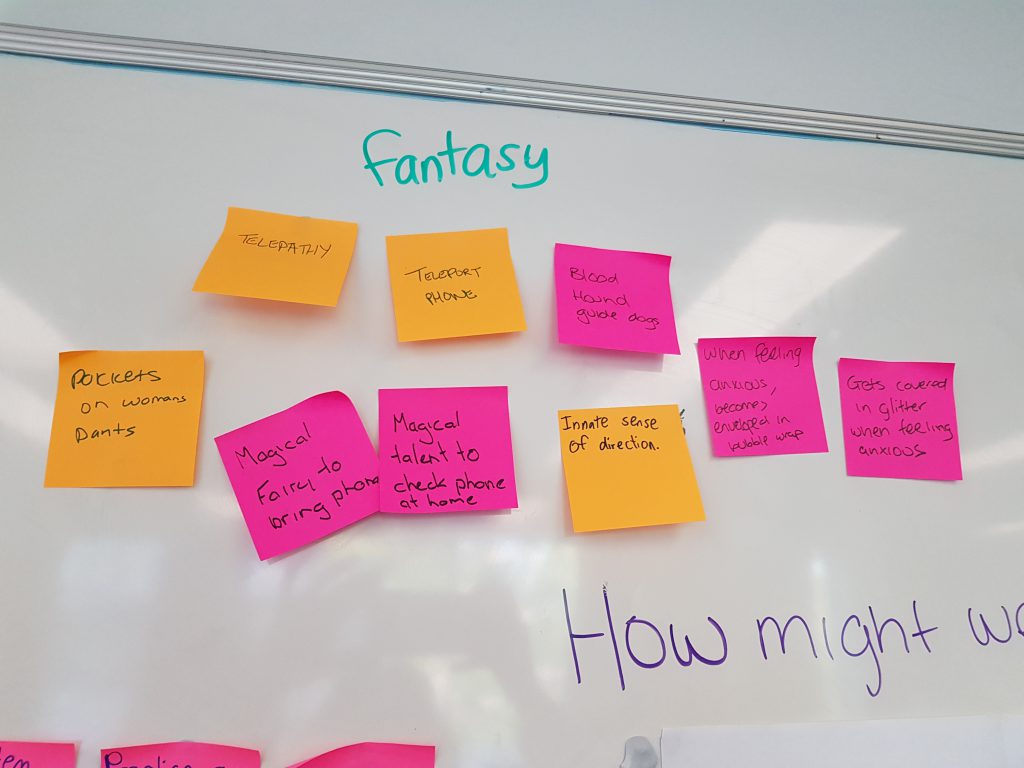 Fantasy
TELEPATHY
TELEPORT
PHONE
Blood
Hound
guide dogs
Pockets
on womans
Pants
Magical
Fairy to
bring phone
Magical
talent to
check phone
at home
Innate sense
of direction.
When feeling
anxious,
becomes
enveloped in
bubble wrap
Gets covered
in Glitter
when feeling
anxious
How might we